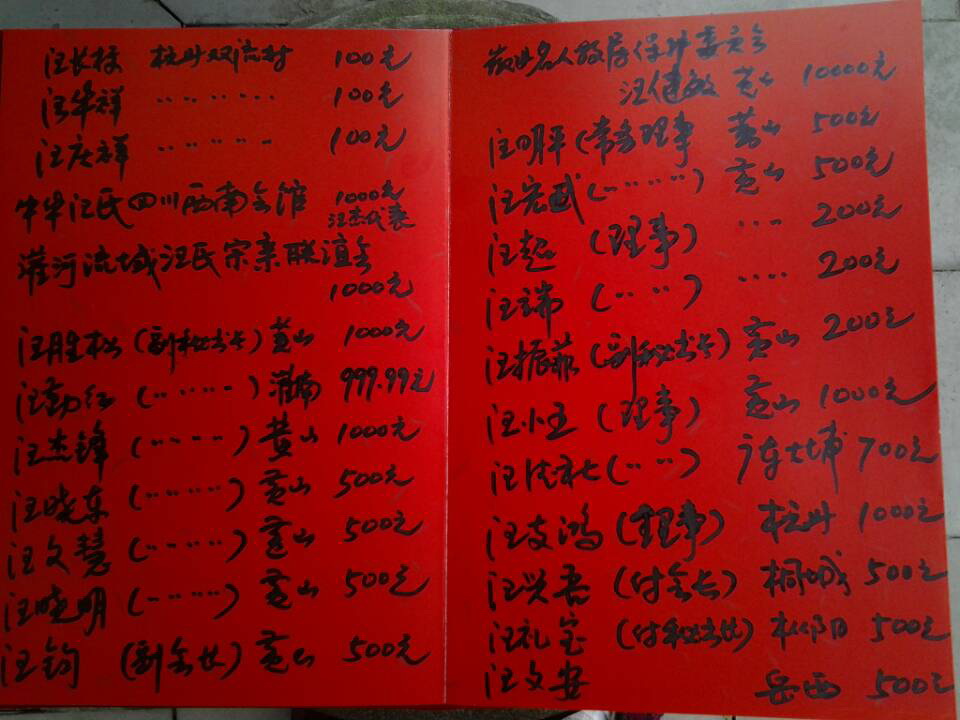 汪长标 杭州双流村 100元
汪华祥 〃〃〃〃〃 100元
汪庆祥 〃〃〃〃〃 100元
中华汪氏四川西南会馆 1000元
汪杰代表
淮河流域汪氏宗亲联谊会
1000元
汪胜松(副秘书长)黄山 1000元
汪勤红(〃〃〃〃)淮南 999.99元
汪杰锋(〃〃〃〃)黄山 1000元
汪晓东(〃〃〃〃)黄山 500元
汪文慧(〃〃〃〃)黄山 500元
汪晓明(〃〃〃〃)黄山 500元
汪钧(副会长)黄山 500元
徽州名人故居保护委员会
汪健敏 黄山 10000元
汪明平(常务理事 黄山 500元
汪宏武(〃〃〃〃)黄山 500元
汪超(理事)〃〃 200元
汪端(〃〃)〃〃 200元
汪振菲(副秘书长)黄山 200元
汪小玉(理事)黄山 1000元
汪 (〃〃)广东大埔 700元
汪支鸿(理事)杭州 1000元
汪兴吾(付会长)桐城 500元
汪礼宝(付秘书长)枞阳 500元
汪文安 岳西 500元